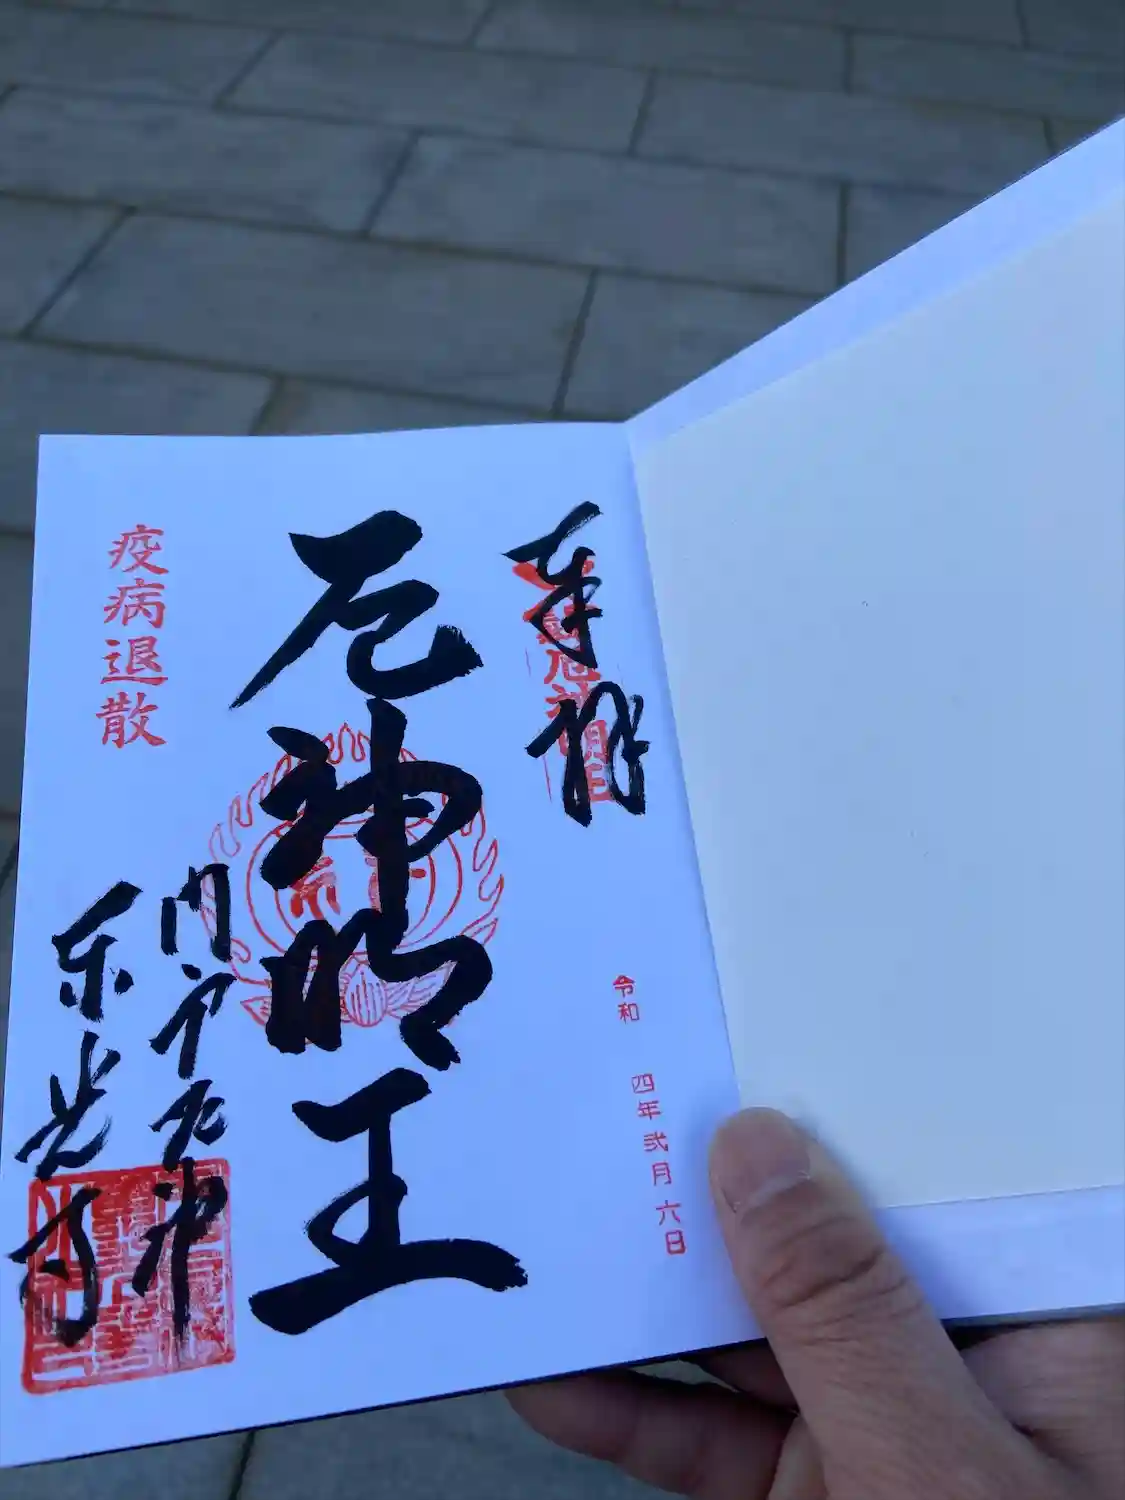 奉拝
令和 四年 弐月 六日
厄神明王
疫病退散
門戸厄神
東光寺